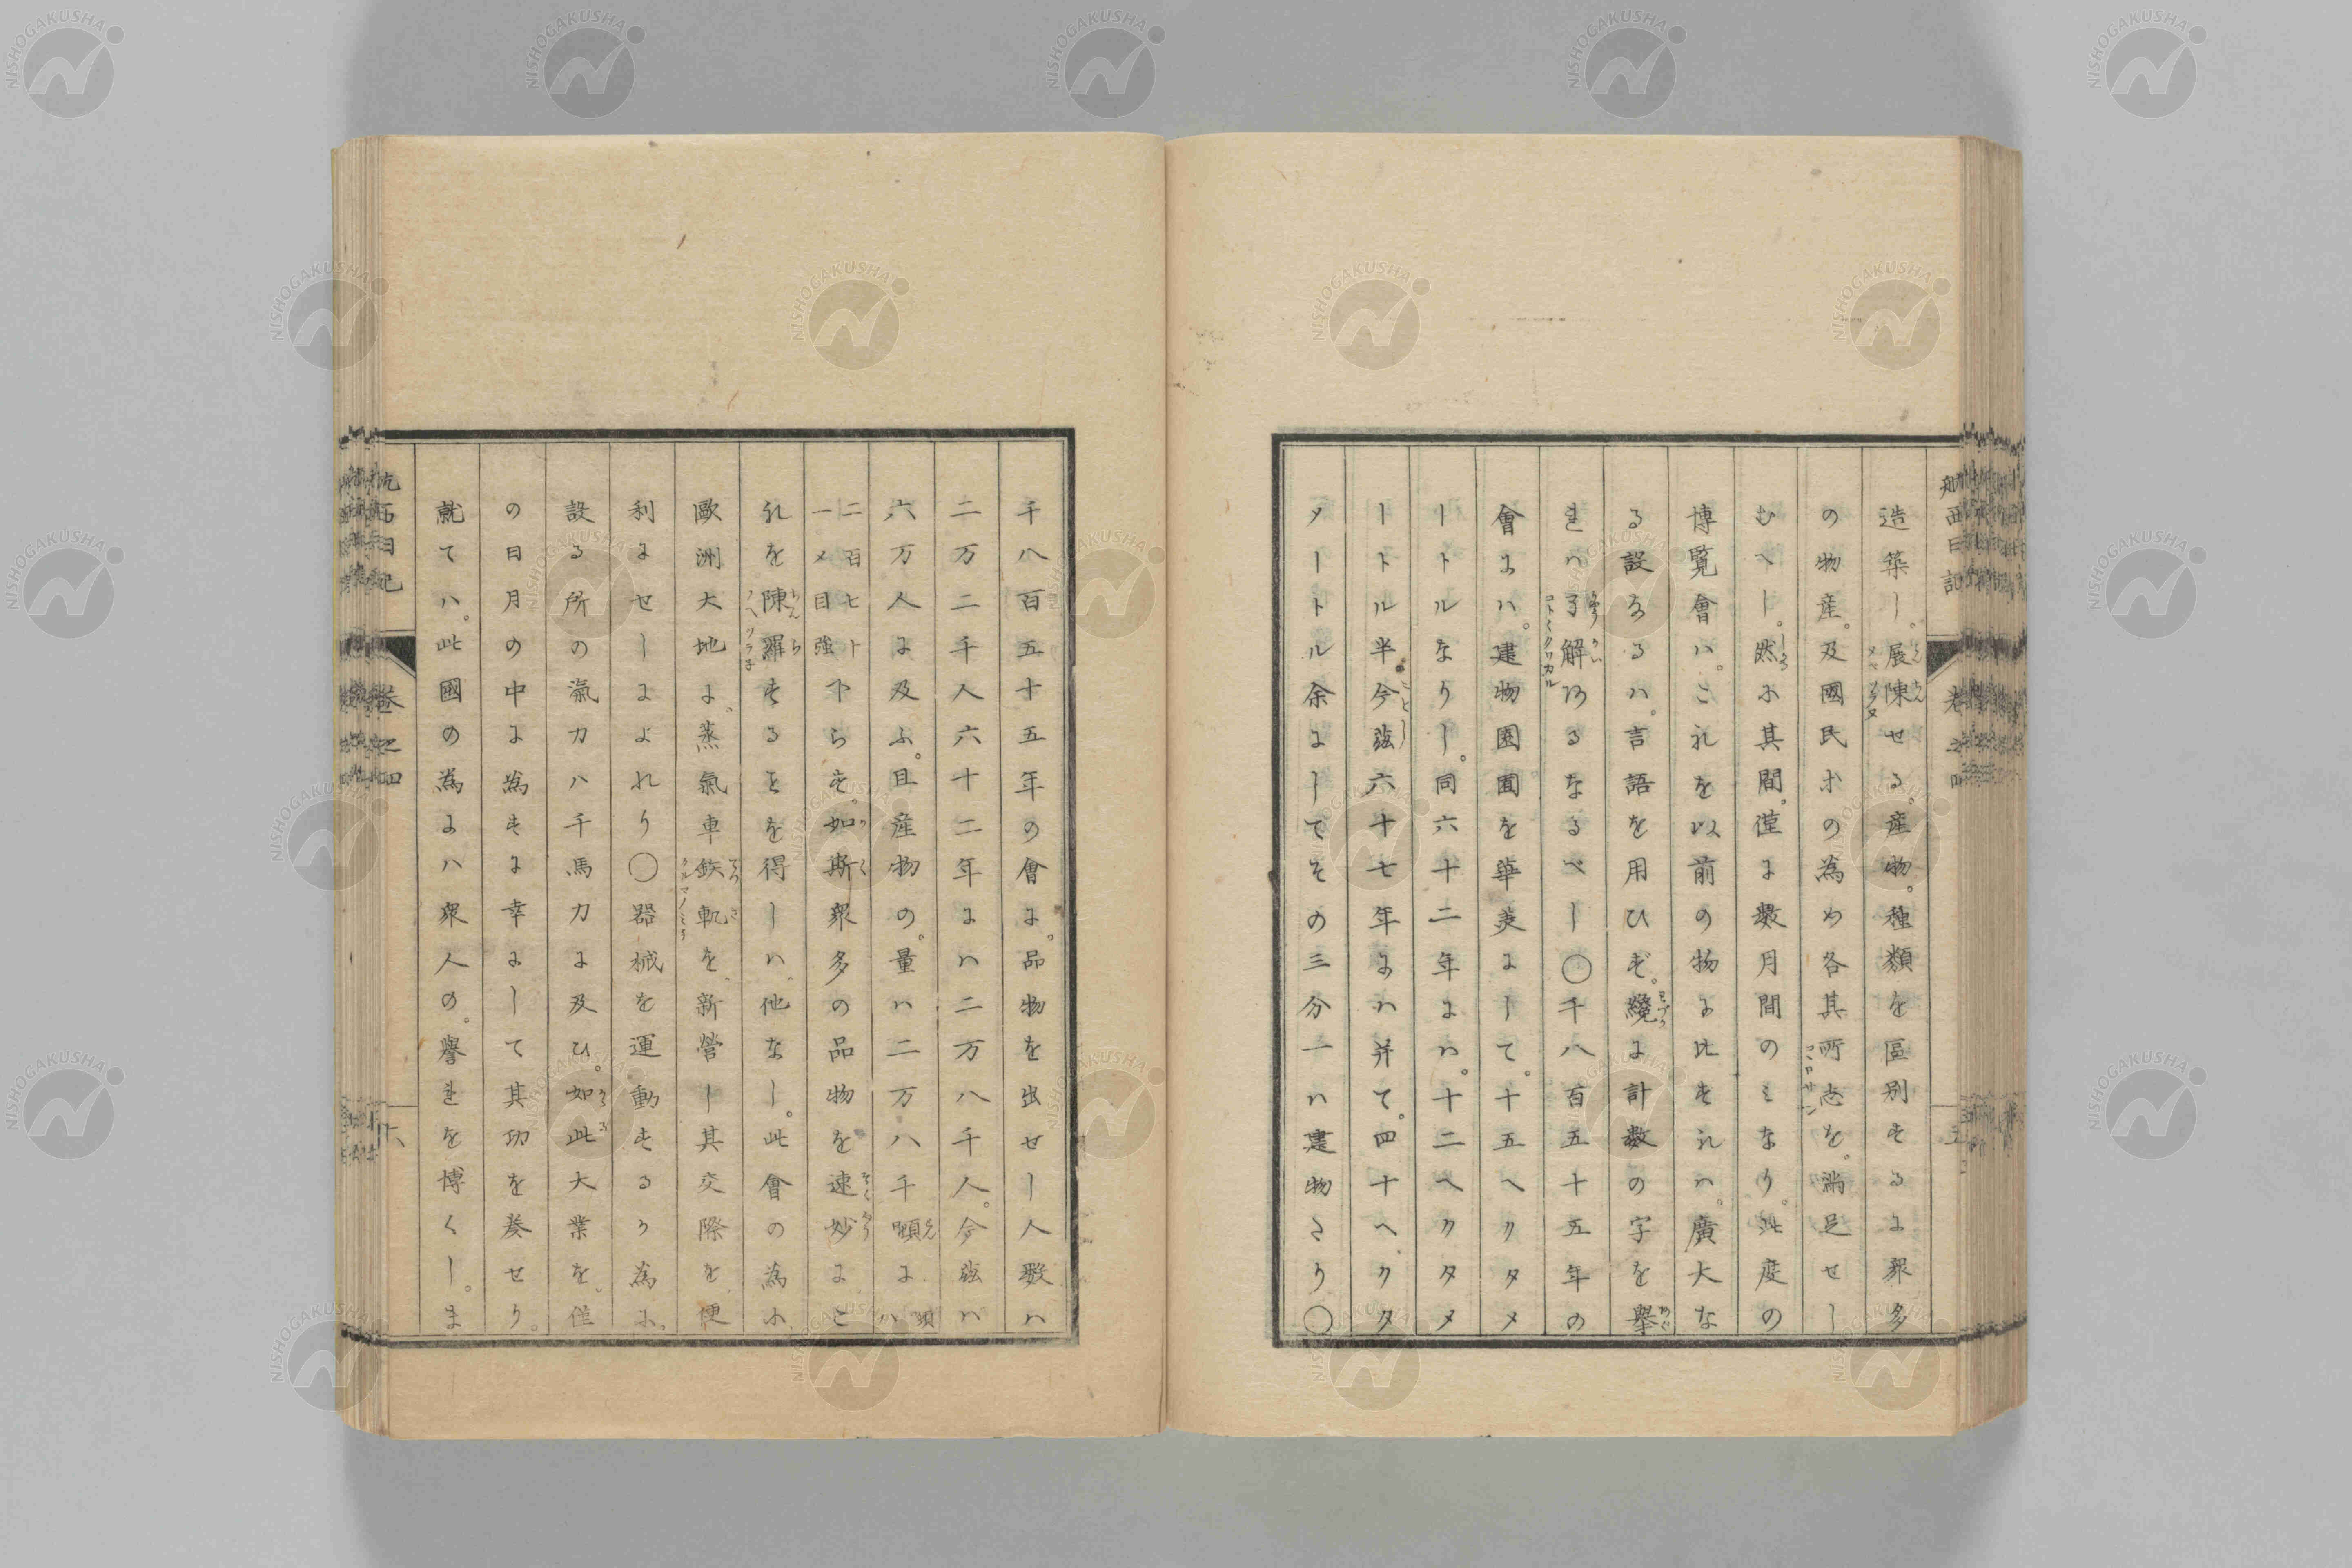 航西日記
卷之四
五
造築し。展陳せる。産物。種類を區別するに衆多
の物産。及國民等の為め各其所志を。満足せし
むへし。然に其間。僅に數月間のミなり。此度の
博覧會ハ。これを以前の物に比すれハ。廣大な
る設なるハ。言語を用ひず。纔に計数の字を舉
れハ了解するなるべし〇千八百五十五年の
會にハ。建物園囿を華美にして。十五ヘクタメ
ートルなりし。同六十二年にハ。十二ヘクタメ
ートル半。今茲六十七年にハ并て。四十ヘクタ
メートル余にしてその三分一ハ建物なり〇
千八百五十五年の會に。品物を出せし人数ハ
二万二千人六十二年にハ二万八千人。今茲ハ
六万人に及ふ。且産物の。量ハ二万八千頓に 頓ハ
二百七十
一メ目強 下らす。如斯衆多の品物を速妙にこ
れを陳羅するとを得しハ、他なし。此會の為に
歐洲大地に。蒸氣車鉄軌を、新營し其交際を、便
利にせしによれり〇器械を運動するか為に、
設る所の瀛力ハ千馬力に及ひ。如此大業を。僅
の日月の中に為すに幸にして其功を奏せり。
就てハ。此國の為にハ衆人の。譽れを博くし。ま
航西日記
卷之四
六